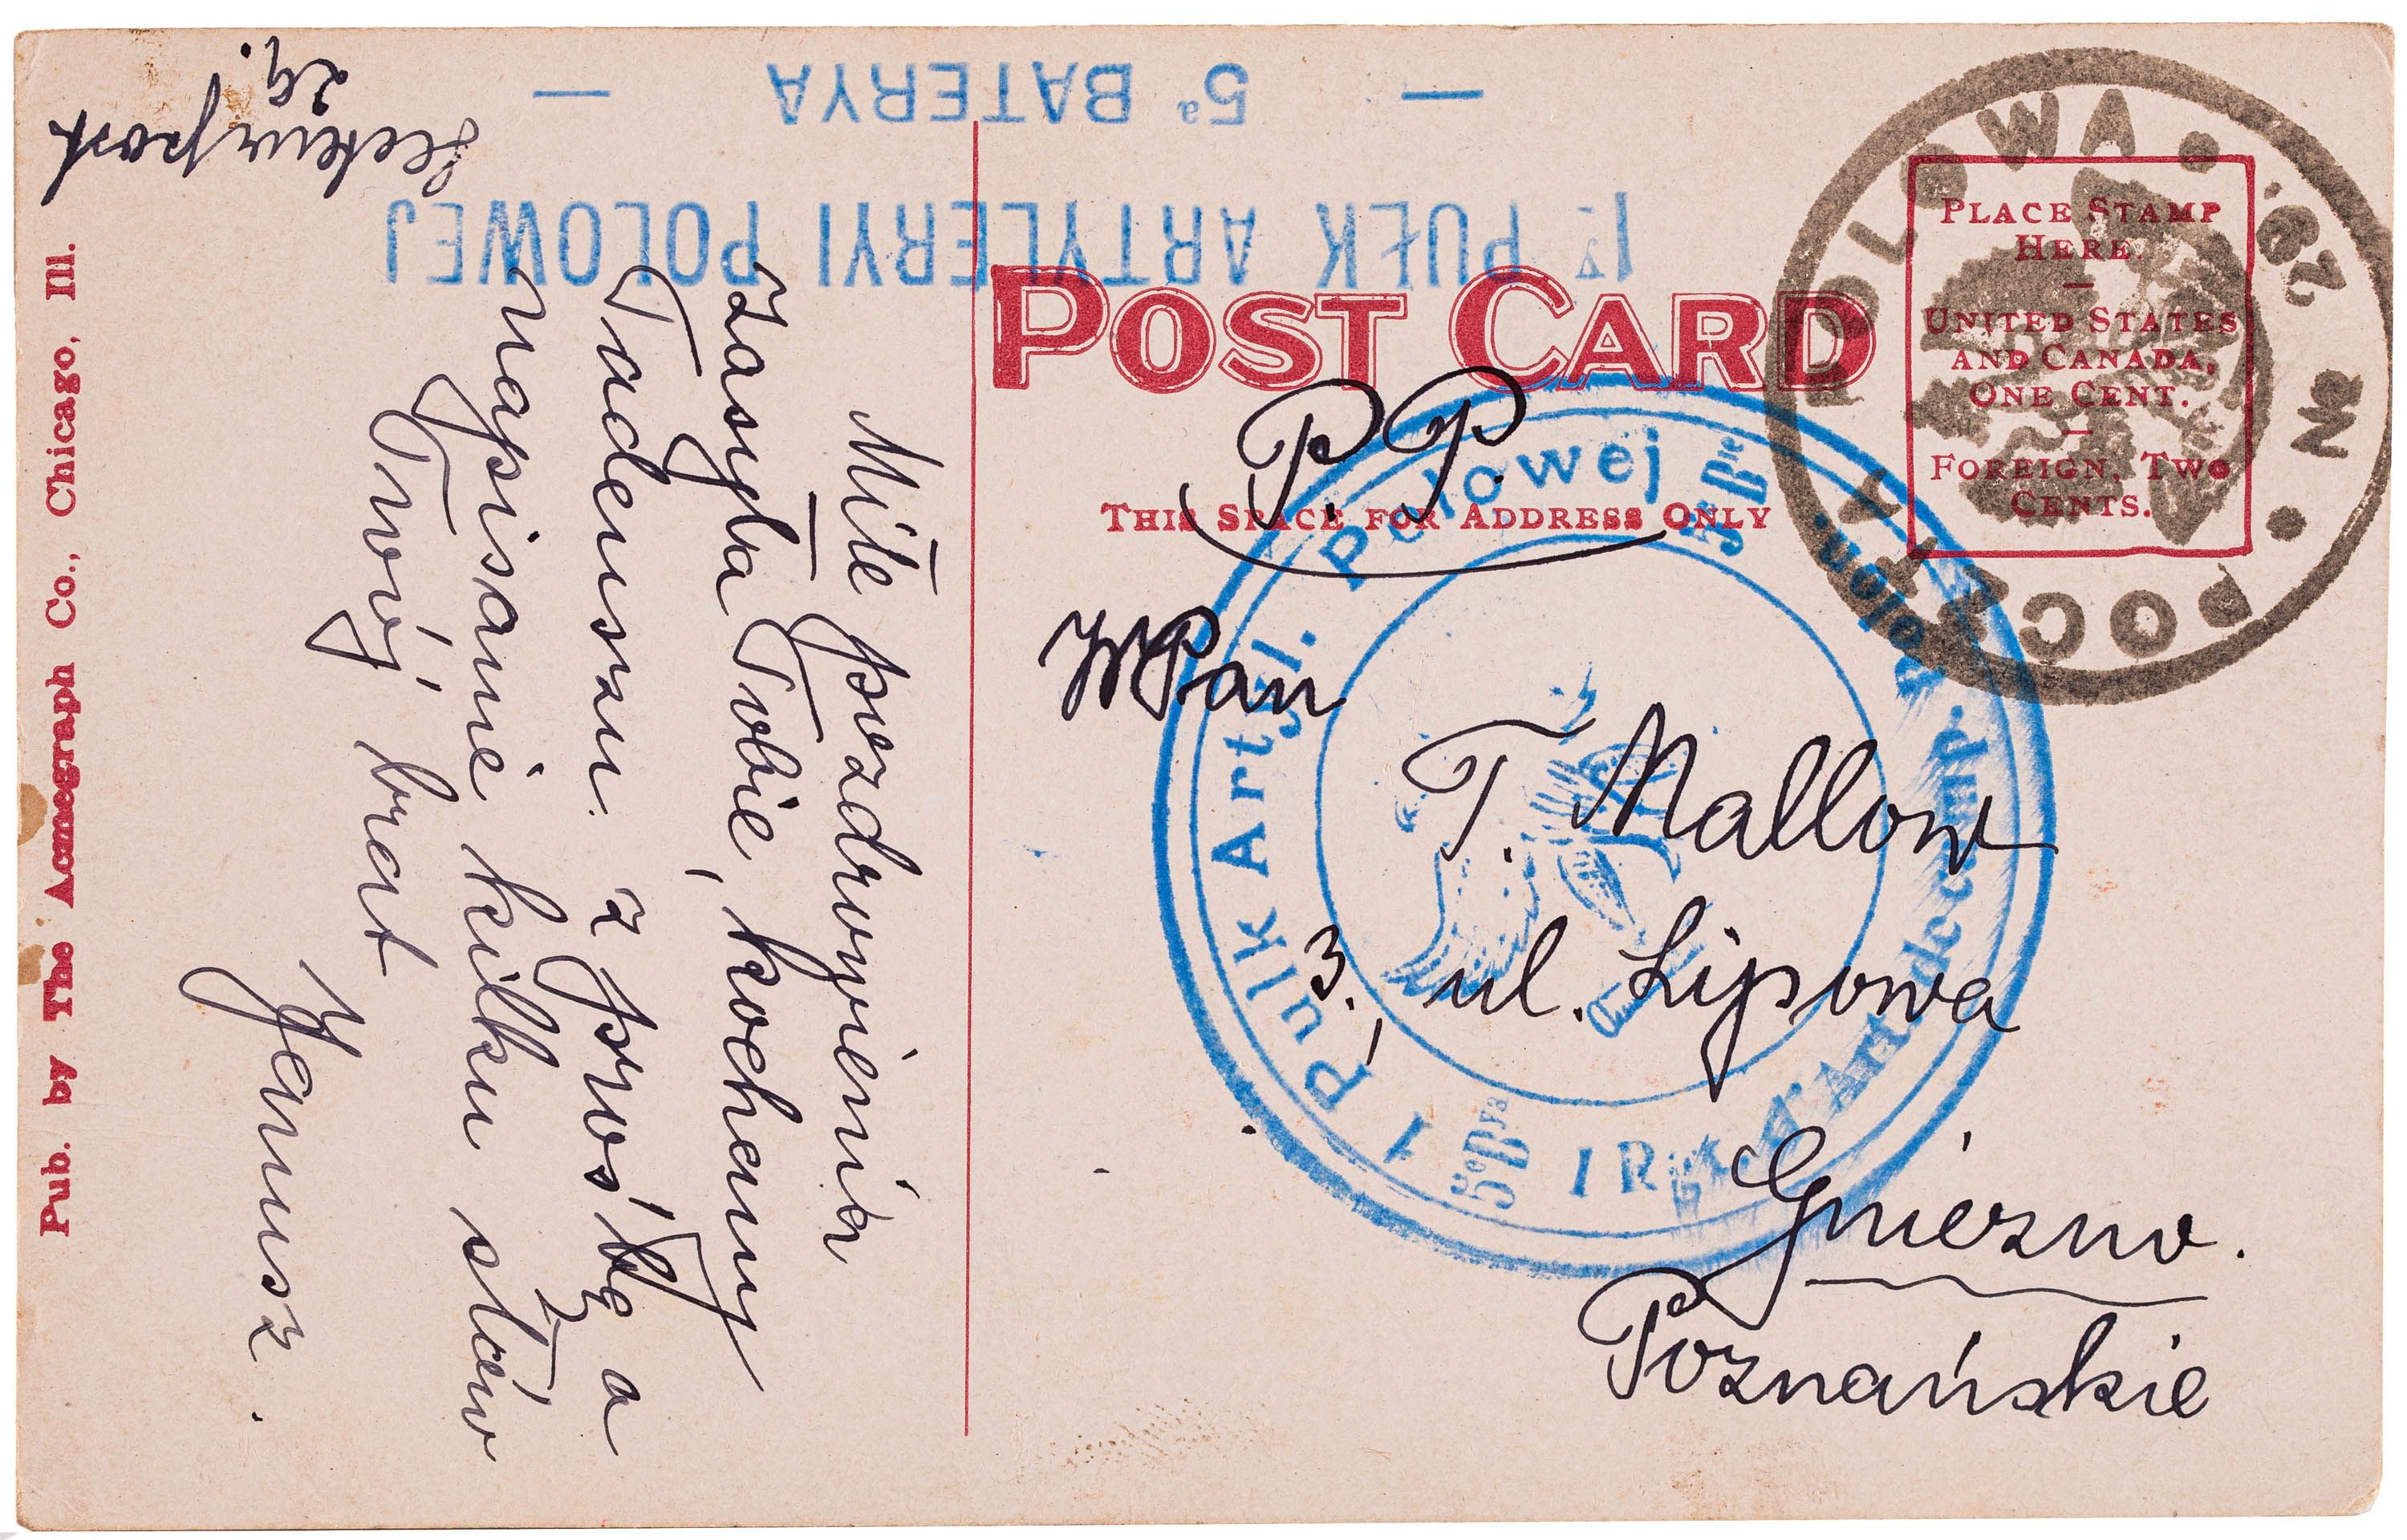 POST CARD
THIS SPACE FOR ADDRESS ONLY
PLACE STAMP
HERE.
UNITED STATES
AND CANADA,
ONE CENT.
FOREIGN, TWO
CENTS.
POCZTA POLOWA • 67. • № •
1y PUŁK ARTYLERYI POLOWEJ
— 5a BATERYA —
1 Pulk Artyl. Polowej 5 Bie
5e Bya 1 R Art. de camp. Polon.
P.P.
WPan
T. Mallow
3. ul. Lipowa
Gniezno.
Poznańskie
29.
Miłe pozdrowienia
zasyła Tobie, kochany
Tadeuszu z prośbą o
napisanie kilku słów
Twój brat
Janusz.
Pub. by The Acmegraph Co., Chicago, Ill.